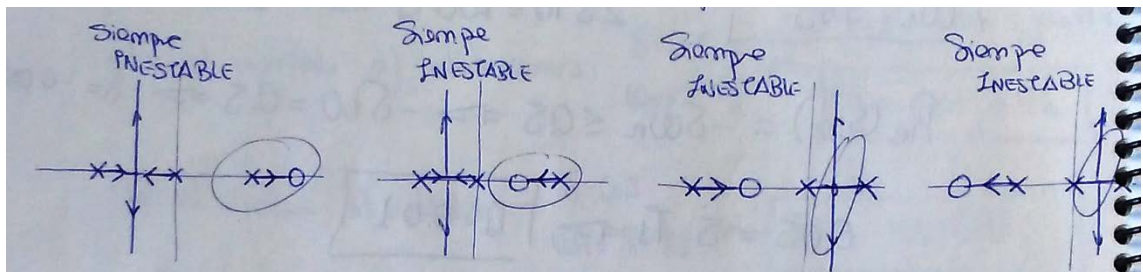 Siempre
INESTABLE
Siempre
INESTABLE
Siempre
INESTABLE
Siempre
INESTABLE